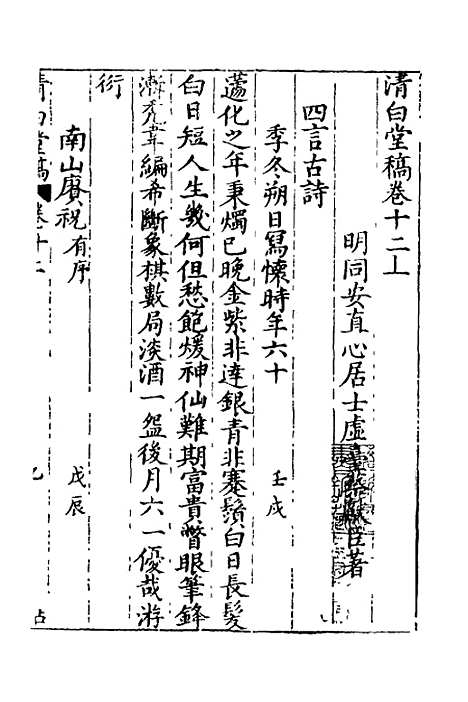 清白堂稿卷十二上
明同安直心居士虛臺蔡獻臣著
四言古詩
季冬朔日寫懷時年六十 壬戌
蘧化之年秉燭已晚金紫非達銀青非蹇鬚白日長髮
白日短人生幾何但愁飽煖神仙難期富貴瞥眼筆鋒
漸禿韋編希斷象棋數局淡酒一盌後月六一優哉游
衍
南山賡祝有序 戊辰
清白堂稿 卷十二